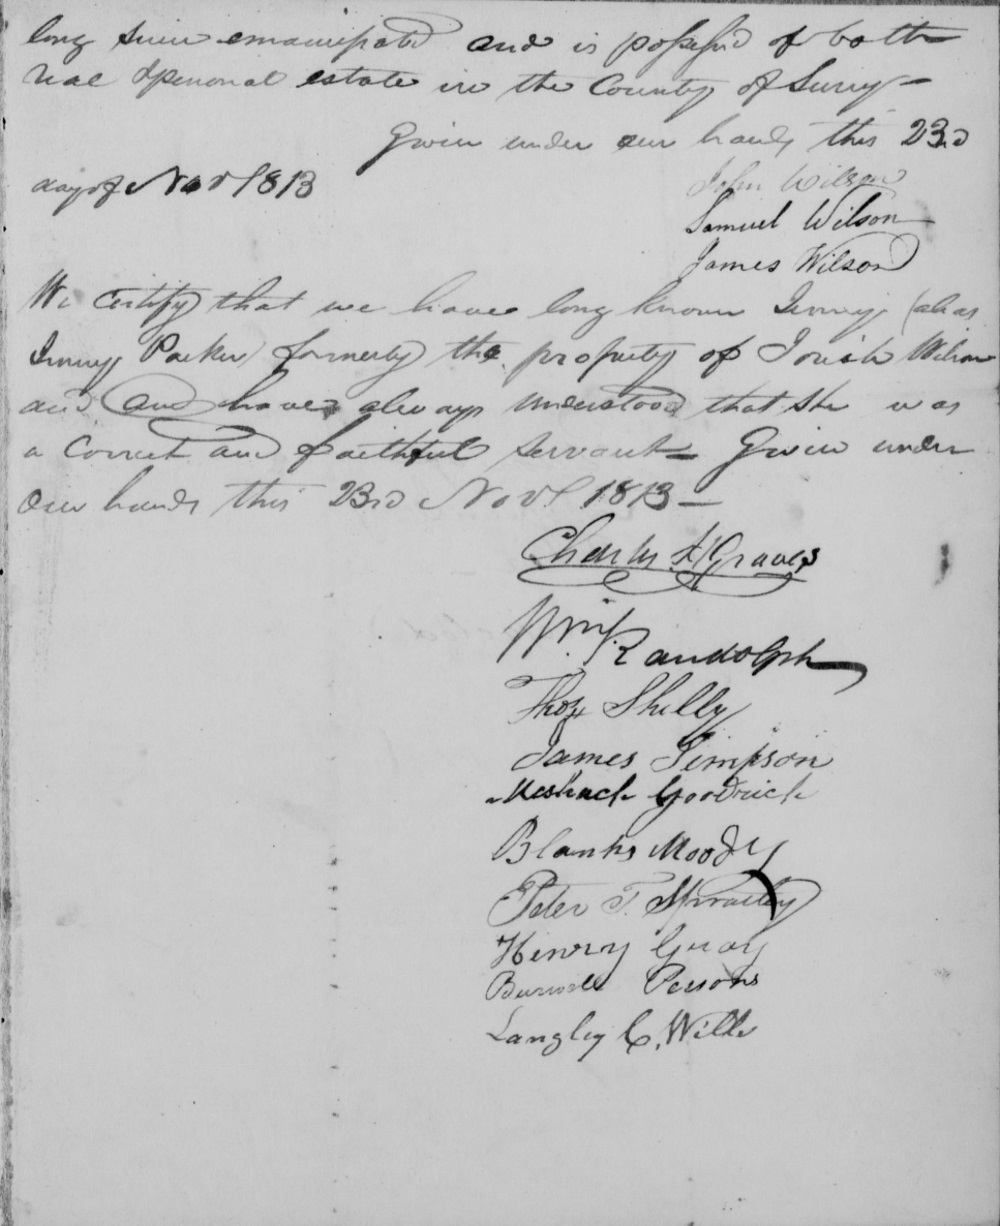 long since emancipated and is possessed of both
real & personal estate in the County of Surry –
Given under our hands this 23rd
day of Novr 1813
John Wilson
Samuel Wilson
James Wilson
We Certify that we have long known Jenny (alias
Jenny Parker) formerly the property of Josiah Wilson
and and have always understood that she was
a correct and faithful servant – Given under
our hands this 23rd Novr 1813 –
Charles H Graves
Wm Randolph
Thos Shelly
James Simpson
Meshack Goodrich
Blanks Moody
Peter T. Spratley
Henry Gray
Burwell Persons
Langley C. Wills